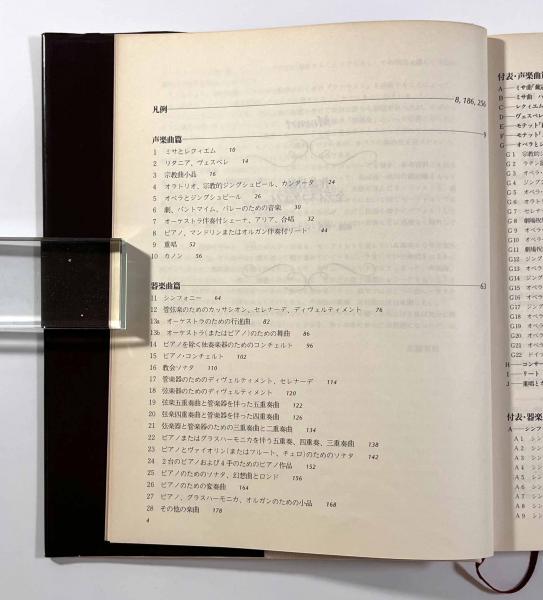 凡例 8, 186, 256
声楽曲篇 9
1 ミサとレクィエム 10
2 リタニア、ヴェスペレ 14
3 宗教曲小品 16
4 オラトリオ、宗教的ジングシュピール、カンタータ 24
5 オペラとジングシュピール 26
6 劇、パントマイム、バレーのための音楽 30
7 オーケストラ伴奏付シェーナ、アリア、合唱 32
8 ピアノ、マンドリンまたはオルガン伴奏付リート 44
9 重唱 52
10 カノン 56
器楽曲篇 63
11 シンフォニー 64
12 管弦楽のためのカッサシオン、セレナーデ、ディヴェルティメント 76
13a オーケストラのための行進曲 82
13b オーケストラ(またはピアノ)のための舞曲 86
14 ピアノを除く独奏楽器のためのコンチェルト 96
15 ピアノ・コンチェルト 102
16 教会ソナタ 110
17 管楽器のためのディヴェルティメント、セレナーデ 114
18 弦楽器のためのディヴェルティメント 120
19 弦楽五重奏曲と管楽器を伴った五重奏曲 122
20 弦楽四重奏曲と管楽器を伴った四重奏曲 126
21 弦楽器と管楽器のための三重奏曲と二重奏曲 134
22 ピアノまたはグラスハーモニカを伴う五重奏、四重奏、三重奏曲 138
23 ピアノとヴァイオリン(またはフルート、チェロ)のためのソナタ 142
24 2台のピアノおよび4手のためのピアノ作品 152
25 ピアノのためのソナタ、幻想曲とロンド 156
26 ピアノのための変奏曲 164
27 ピアノ、グラスハーモニカ、オルガンのための小品 168
28 その他の楽曲 178
4
付表・声楽曲篇
A
B
C
D
E
F
G
G1
G2
G3
G4
G5
G6
G7
G8
G9
G10
G11
G12
G13
G14
G15
G16
G17
G18
G19
G20
G21
G22
H
I
J
付表・器楽
A
A1
A2
A3
A4
A5
A6
A7
A8
A9